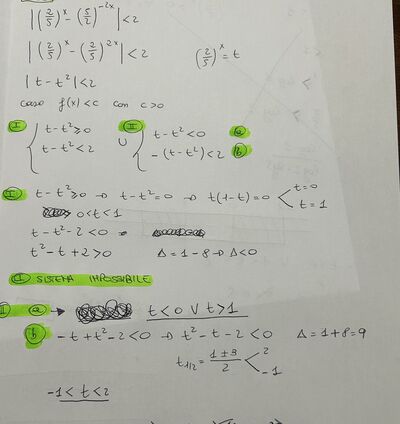 |(2/5)^x - (5/2)^-2x| < 2
|(2/5)^x - (2/5)^2x| < 2 (2/5)^x = t
|t - t²| < 2
caso f(x) < c con c > 0
I { t - t² ≥ 0 ∪ II { t - t² < 0 a
t - t² < 2 - (t - t²) < 2 b
I t - t² ≥ 0 → t - t² = 0 → t(1 - t) = 0 < t = 0
t = 1
0 < t < 1
t - t² - 2 < 0 =
t² - t + 2 > 0 Δ = 1 - 8 → Δ < 0
I SISTEMA IMPOSSIBILE
II a → t < 0 ∨ t > 1
b - t + t² - 2 < 0 → t² - t - 2 < 0 Δ = 1 + 8 = 9
t1/2 = 1 ± 3 / 2 < 2
-1
-1 < t < 2